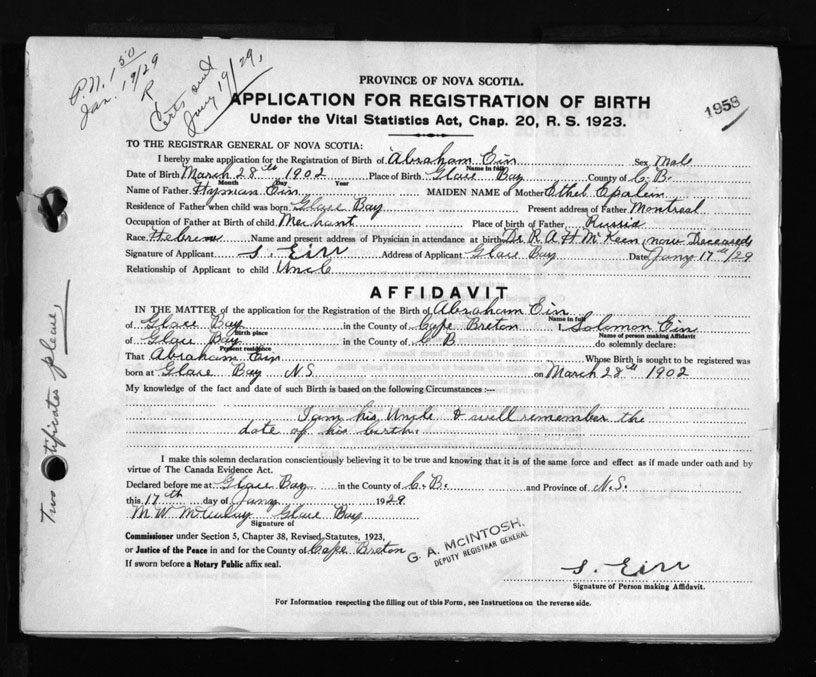 P.N. 1 50
Jan. 19/29
R
Certs out
Jany 19/29,
1958
PROVINCE OF NOVA SCOTIA.
APPLICATION FOR REGISTRATION OF BIRTH
Under the Vital Statistics Act, Chap. 20, R. S. 1923.
TO THE REGISTRAR GENERAL OF NOVA SCOTIA:
I hereby make application for the Registration of Birth of Abraham Ein Sex Male
Name in full
Date of Birth March 28th 1902 Place of Birth Glace Bay County of C. B.
Month Day Year
Name of Father Hyman Ein MAIDEN NAME of Mother Ethel Epstein
Residence of Father when child was born Glace Bay Present address of Father Montreal
Occupation of Father at Birth of child Merchant Place of birth of Father Russia
Race Hebrew Name and present address of Physician in attendance at birth Dr R. A. H. McKeen, now Deceased
Signature of Applicant S. Ein Address of Applicant Glace Bay Date Jany 17th/29
Relationship of Applicant to child Uncle
AFFIDAVIT
IN THE MATTER of the application for the Registration of the Birth of Abraham Ein
Name in full
of Glace Bay in the County of Cape Breton I, Solomon Ein
Birth place Name of person making Affidavit
of Glace Bay in the County of C B do solemnly declare:
Present residence
That Abraham Ein Whose Birth is sought to be registered was
born at Glace Bay N S on March 28th 1902
My knowledge of the fact and date of such Birth is based on the following Circumstances :—
I am his Uncle & well remember the
date of his birth.
I make this solemn declaration conscientiously believing it to be true and knowing that it is of the same force and effect as if made under oath and by
virtue of The Canada Evidence Act.
Declared before me at Glace Bay in the County of C. B. and Province of N. S.
this 17th day of Jany 1929
M. W. Glace Bay
Signature of
Commissioner under Section 5, Chapter 38, Revised Statutes, 1923,
or Justice of the Peace in and for the County of Cape Breton
If sworn before a Notary Public affix seal.
G. A. McINTOSH,
DEPUTY REGISTRAR GENERAL
S. Ein
Signature of Person making Affidavit.
For Information respecting the filling out of this Form, see Instructions on the reverse side.
Two certificates please,